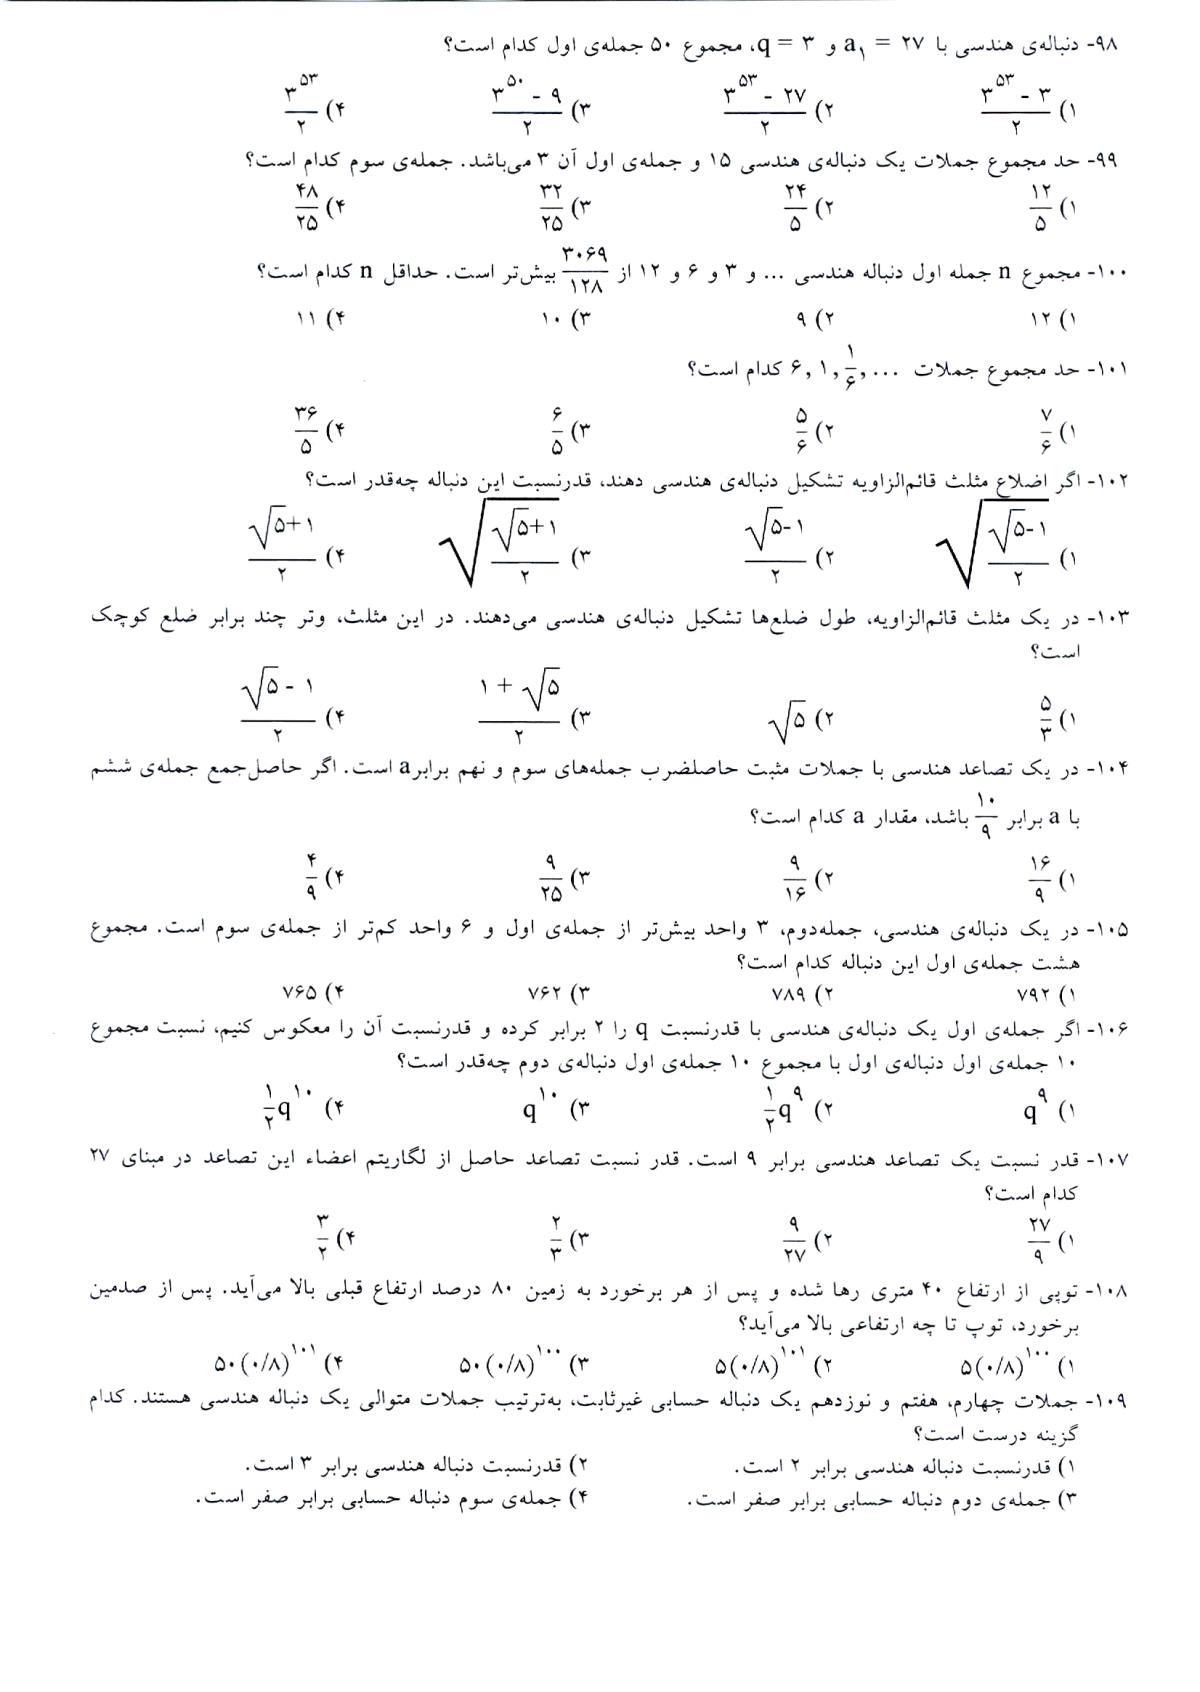 ۹۸- دنباله‌ی هندسی با a₁ = ۲۷ و q = ۳، مجموع ۵۰ جمله‌ی اول کدام است؟
۱) (۳^۵۳ - ۳)/۲ ۲) (۳^۵۳ - ۲۷)/۲ ۳) (۳^۵۰ - ۹)/۲ ۴) ۳^۵۳/۲
۹۹- حد مجموع جملات یک دنباله‌ی هندسی ۱۵ و جمله‌ی اول آن ۳ می‌باشد. جمله‌ی سوم کدام است؟
۱) ۱۲/۵ ۲) ۲۴/۵ ۳) ۳۲/۲۵ ۴) ۴۸/۲۵
۱۰۰- مجموع n جمله اول دنباله هندسی ... و ۳ و ۶ و ۱۲ از ۳۰۶۹/۱۲۸ بیش‌تر است. حداقل n کدام است؟
۱) ۱۲ ۲) ۹ ۳) ۱۰ ۴) ۱۱
۱۰۱- حد مجموع جملات ۶, ۱, ۱/۶, ... کدام است؟
۱) ۷/۶ ۲) ۵/۶ ۳) ۶/۵ ۴) ۳۶/۵
۱۰۲- اگر اضلاع مثلث قائم‌الزاویه تشکیل دنباله‌ی هندسی دهند، قدرنسبت این دنباله چه‌قدر است؟
۱) √((√۵-۱)/۲) ۲) (√۵-۱)/۲ ۳) √((√۵+۱)/۲) ۴) (√۵+۱)/۲
۱۰۳- در یک مثلث قائم‌الزاویه، طول ضلع‌ها تشکیل دنباله‌ی هندسی می‌دهند. در این مثلث، وتر چند برابر ضلع کوچک
است؟
۱) ۵/۳ ۲) √۵ ۳) (۱ + √۵)/۲ ۴) (√۵ - ۱)/۲
۱۰۴- در یک تصاعد هندسی با جملات مثبت حاصلضرب جمله‌های سوم و نهم برابر a است. اگر حاصل‌جمع جمله‌ی ششم
با a برابر ۱۰/۹ باشد، مقدار a کدام است؟
۱) ۱۶/۹ ۲) ۹/۱۶ ۳) ۹/۲۵ ۴) ۴/۹
۱۰۵- در یک دنباله‌ی هندسی، جمله‌دوم، ۳ واحد بیش‌تر از جمله‌ی اول و ۶ واحد کم‌تر از جمله‌ی سوم است. مجموع
هشت جمله‌ی اول این دنباله کدام است؟
۱) ۷۹۲ ۲) ۷۸۹ ۳) ۷۶۲ ۴) ۷۶۵
۱۰۶- اگر جمله‌ی اول یک دنباله‌ی هندسی با قدرنسبت q را ۲ برابر کرده و قدرنسبت آن را معکوس کنیم، نسبت مجموع
۱۰ جمله‌ی اول دنباله‌ی اول با مجموع ۱۰ جمله‌ی اول دنباله‌ی دوم چه‌قدر است؟
۱) q^۹ ۲) ۱/۲ q^۹ ۳) q^۱۰ ۴) ۱/۲ q^۱۰
۱۰۷- قدر نسبت یک تصاعد هندسی برابر ۹ است. قدر نسبت تصاعد حاصل از لگاریتم اعضاء این تصاعد در مبنای ۲۷
کدام است؟
۱) ۲۷/۹ ۲) ۹/۲۷ ۳) ۲/۳ ۴) ۳/۲
۱۰۸- توپی از ارتفاع ۴۰ متری رها شده و پس از هر برخورد به زمین ۸۰ درصد ارتفاع قبلی بالا می‌آید. پس از صدمین
برخورد، توپ تا چه ارتفاعی بالا می‌آید؟
۱) ۵(۰/۸)^۱۰۰ ۲) ۵(۰/۸)^۱۰۱ ۳) ۵۰(۰/۸)^۱۰۰ ۴) ۵۰(۰/۸)^۱۰۱
۱۰۹- جملات چهارم، هفتم و نوزدهم یک دنباله حسابی غیرثابت، به‌ترتیب جملات متوالی یک دنباله هندسی هستند. کدام
گزینه درست است؟
۱) قدرنسبت دنباله هندسی برابر ۲ است. ۲) قدرنسبت دنباله هندسی برابر ۳ است.
۳) جمله‌ی دوم دنباله حسابی برابر صفر است. ۴) جمله‌ی سوم دنباله حسابی برابر صفر است.